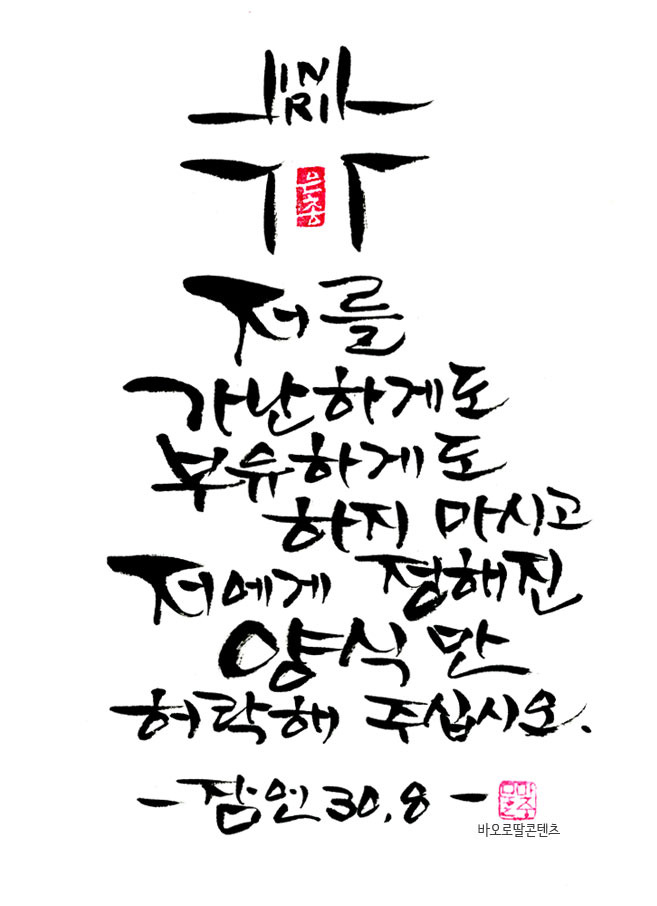 IN
RI
은총
저를
가난하게도
부유하게도
하지 마시고
저에게 정해진
양식만
허락해 주십시오.
-잠언 30,8-
바오로딸콘텐츠